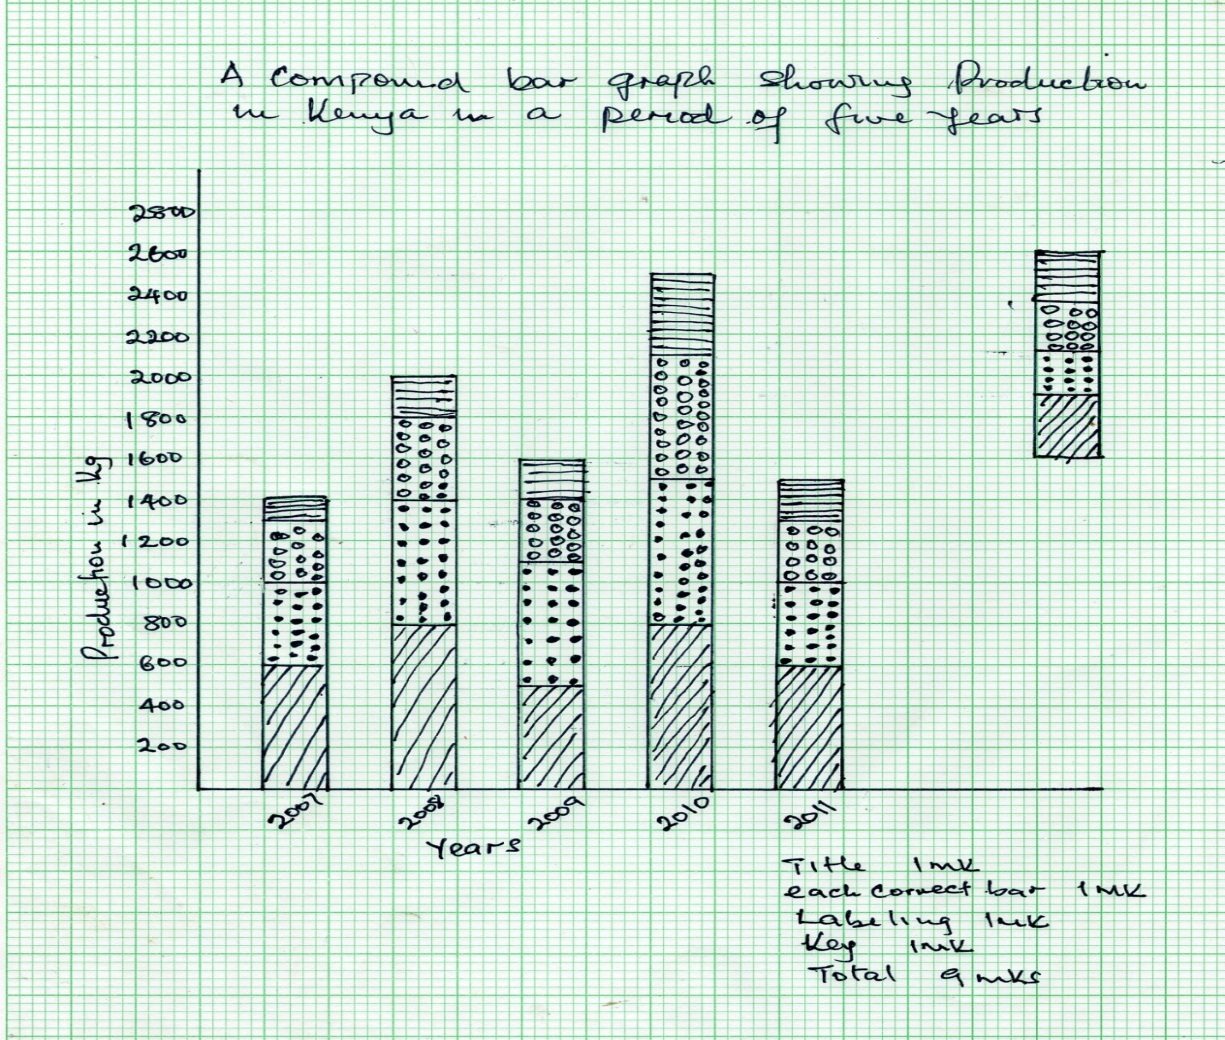 A compound bar graph showing Production
in Kenya in a period of five years
2800
2600
2400
2200
2000
1800
1600
1400
1200
1000
800
600
400
200
Production in kg
2007
2008
2009
2010
2011
Years
Title 1mk
each correct bar 1mk
Labeling 1mk
Key 1mk
Total 9mks